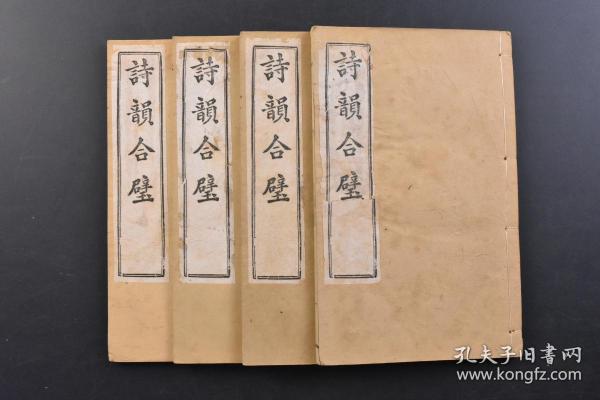 詩韻合璧
詩韻合璧
詩韻合璧
詩韻合璧
孔夫子旧书网
www.kongfz.com